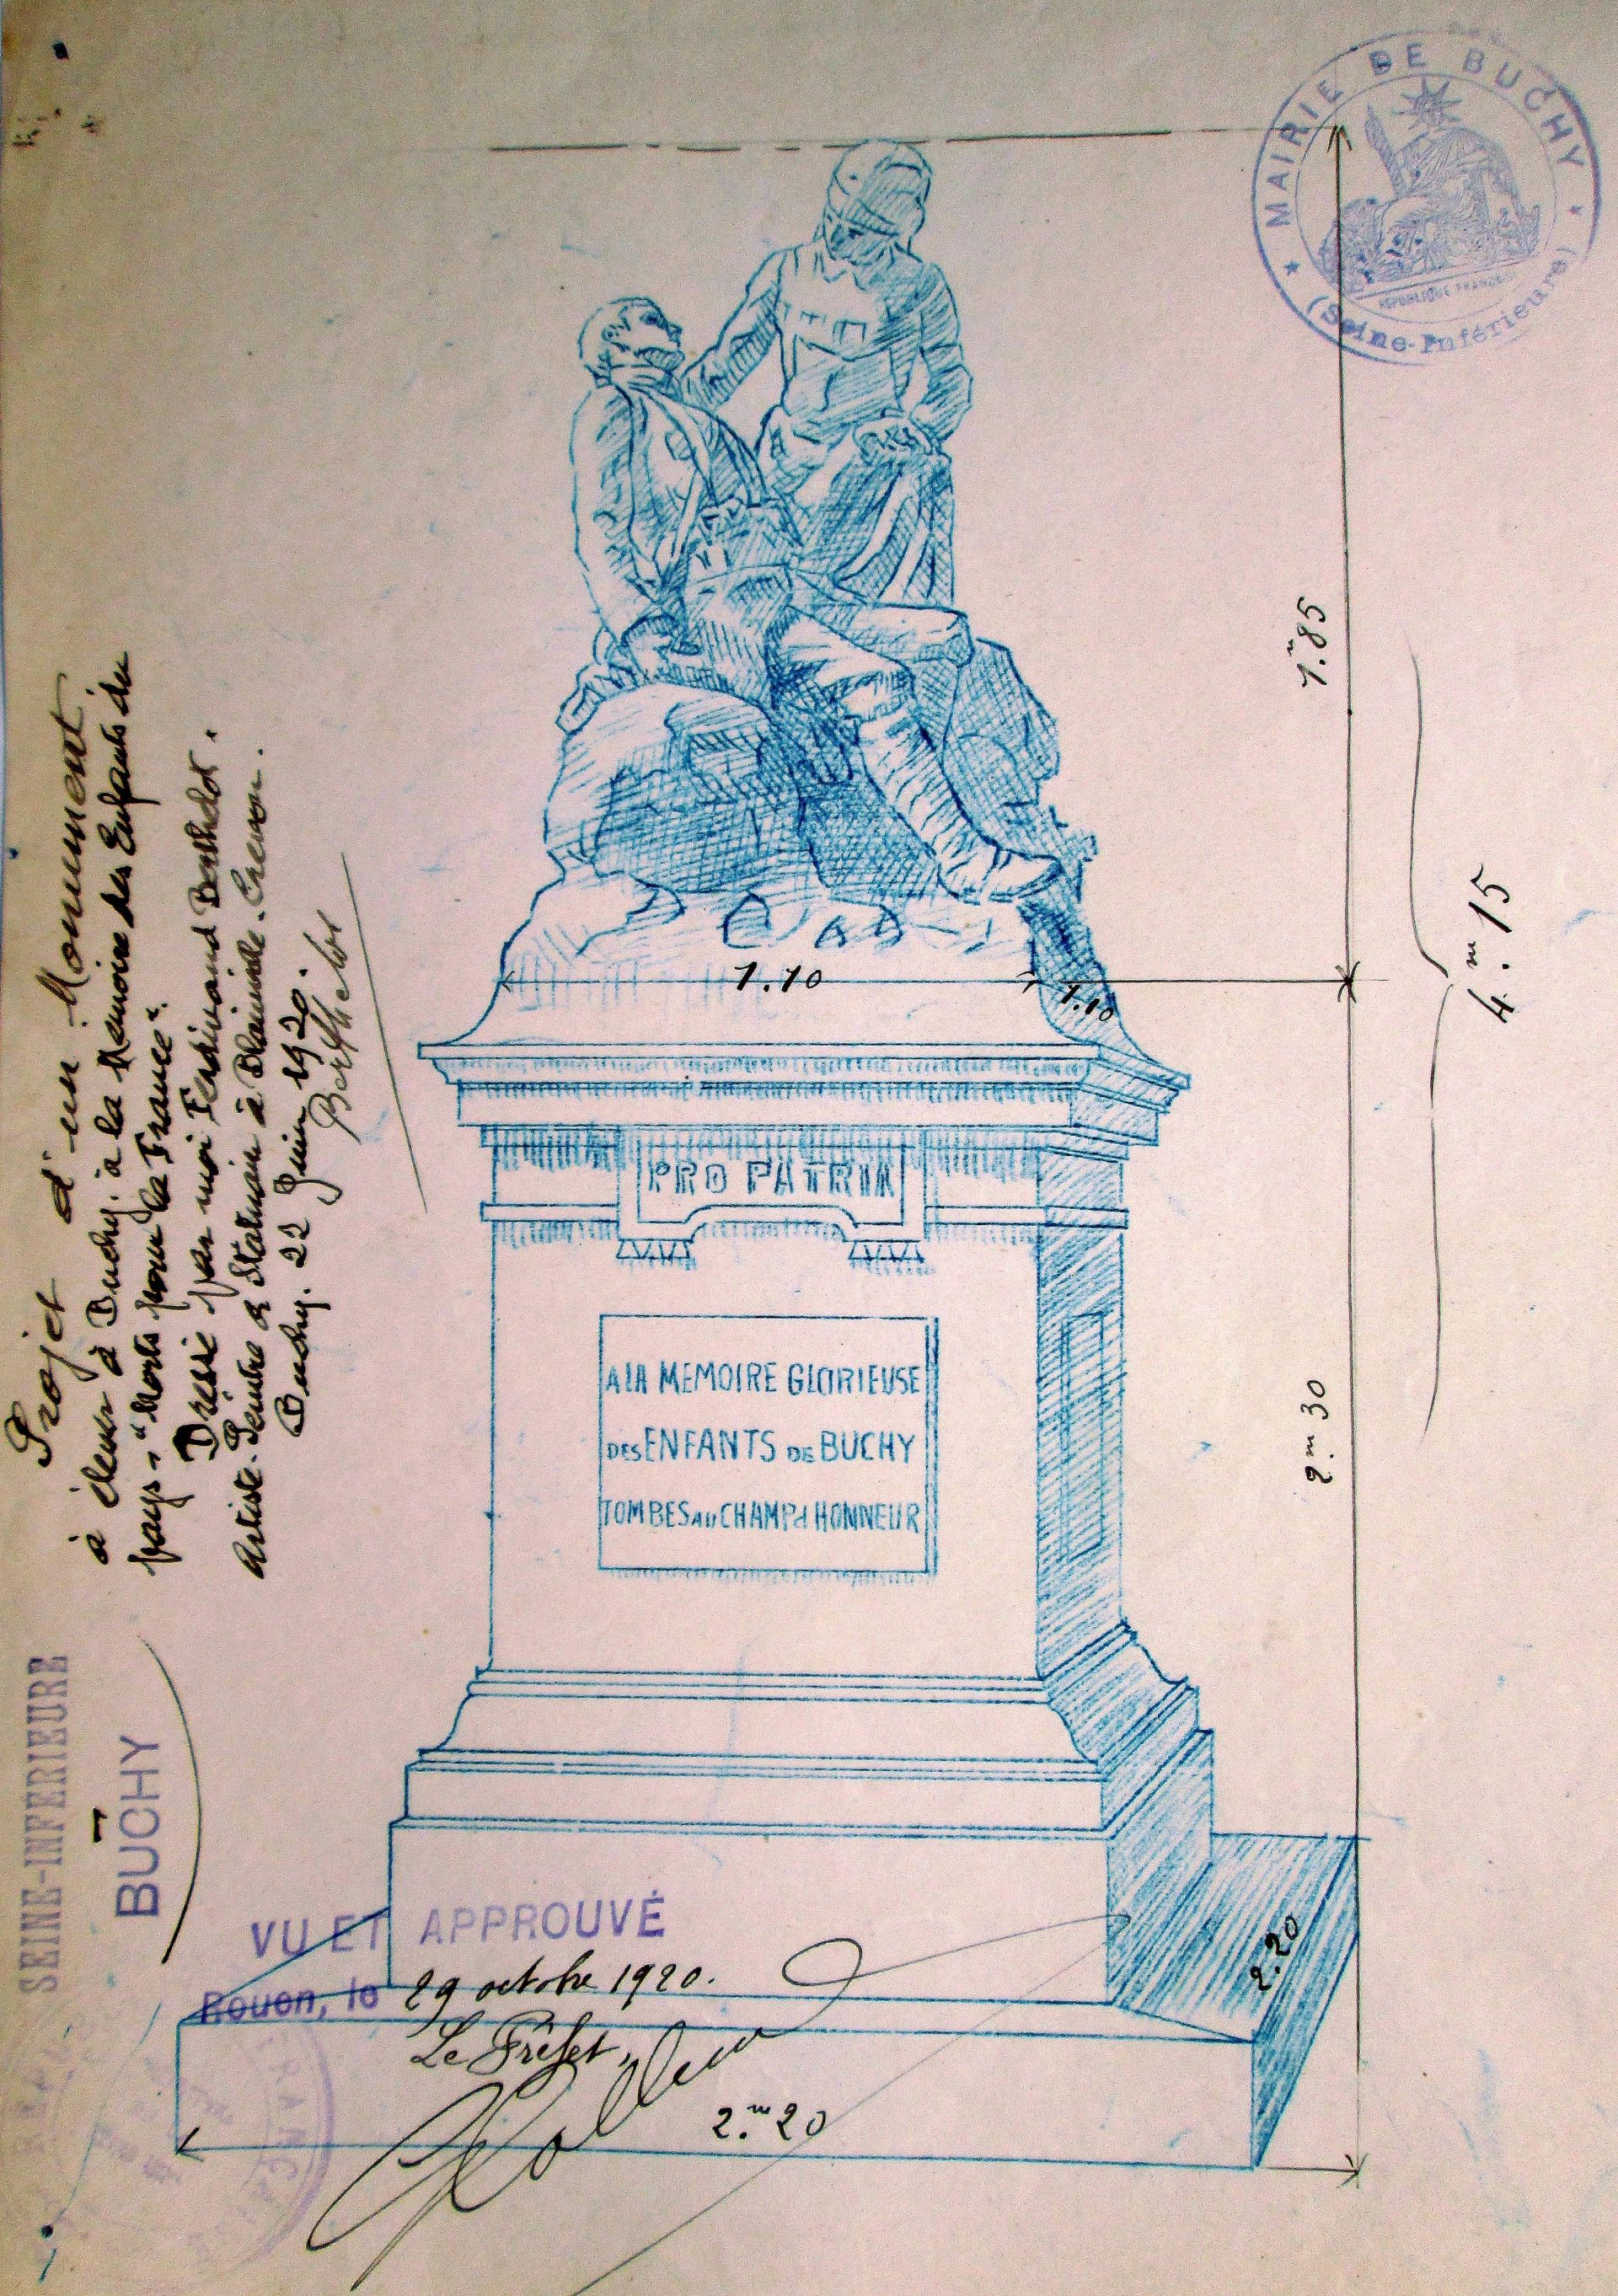 MAIRIE DE BUCHY
REPUBLIQUE FRANÇAISE
(Seine-Inférieure)
Projet d'un Monument
à élever à Buchy. à la Mémoire des Enfants du
pays "Morts pour la France".
Dressé par moi Ferdinand Berthelot.
Artiste-Peintre & Statuaire à Blainville-Crevon.
Buchy. 22 Juin 1920.
Berthelot
1.m85
4.m15
1.10
1.10
PRO PATRIA
A LA MEMOIRE GLORIEUSE
DES ENFANTS DE BUCHY
TOMBES AU CHAMP d HONNEUR
2.m30
SEINE-INFERIEURE
BUCHY
VU ET APPROUVÉ
Rouen, le 29 octobre 1920.
Le Préfet,
2.20
2.m20